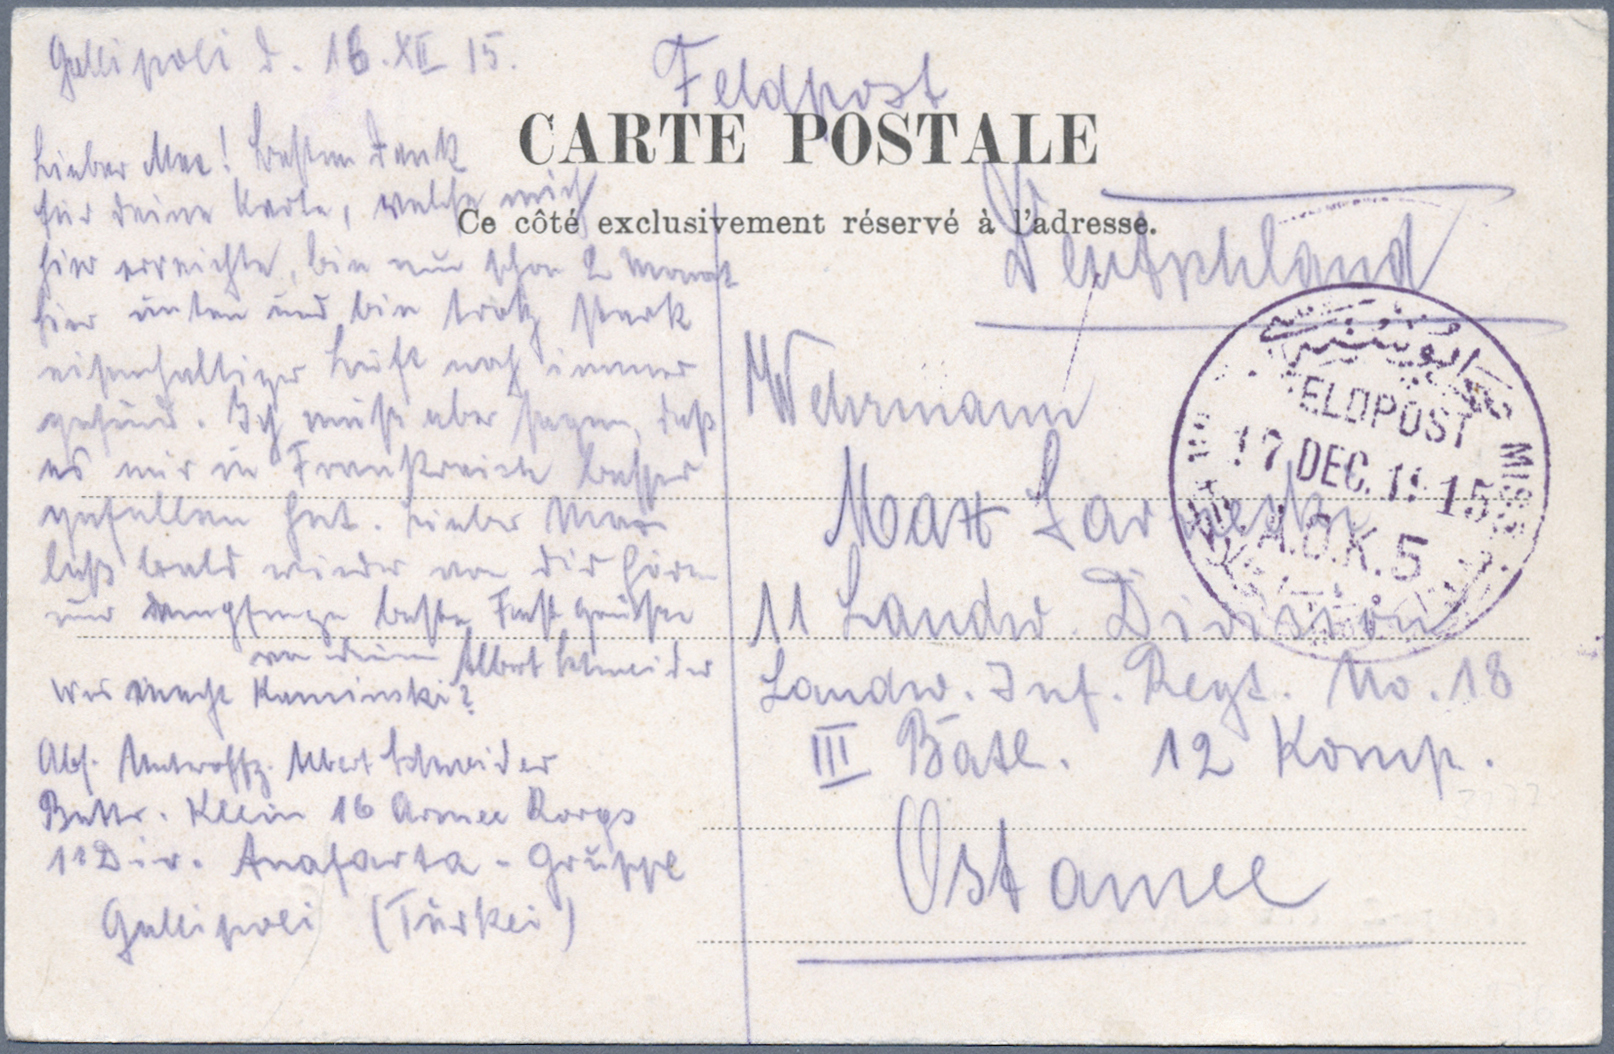 Gallipoli d. 16.XII 15.
Feldpost
CARTE POSTALE
Ce côté exclusivement réservé à l'adresse.
Lieber Max! Besten Dank
für deine Karte, welche mich
hier erreichte, bin nun schon 2 Monat
hier unten und bin trotz stark
eisenhaltiger Luft noch immer
gesund. Ich muß aber sagen, daß
es mir in Frankreich besser
gefallen hat. Lieber Max
laß bald wieder von dir hören
und empfange beste Grüße
von deinem Albert Schneider
Was macht Kaminski?
Abs. Unteroffz. Albert Schneider
Battr. Klein 16 Armee Korps
11 Div. Anafarta-Gruppe
Gallipoli (Türkei)
Deutschland
Wehrmann
Max
11 Landw. Division
Landw. Inf. Regt. No. 18
III Batl. 12 Komp.
Ostarmee
FELDPOST
17 DEC. 1915
A.O.K. 5
MIL. MISS.